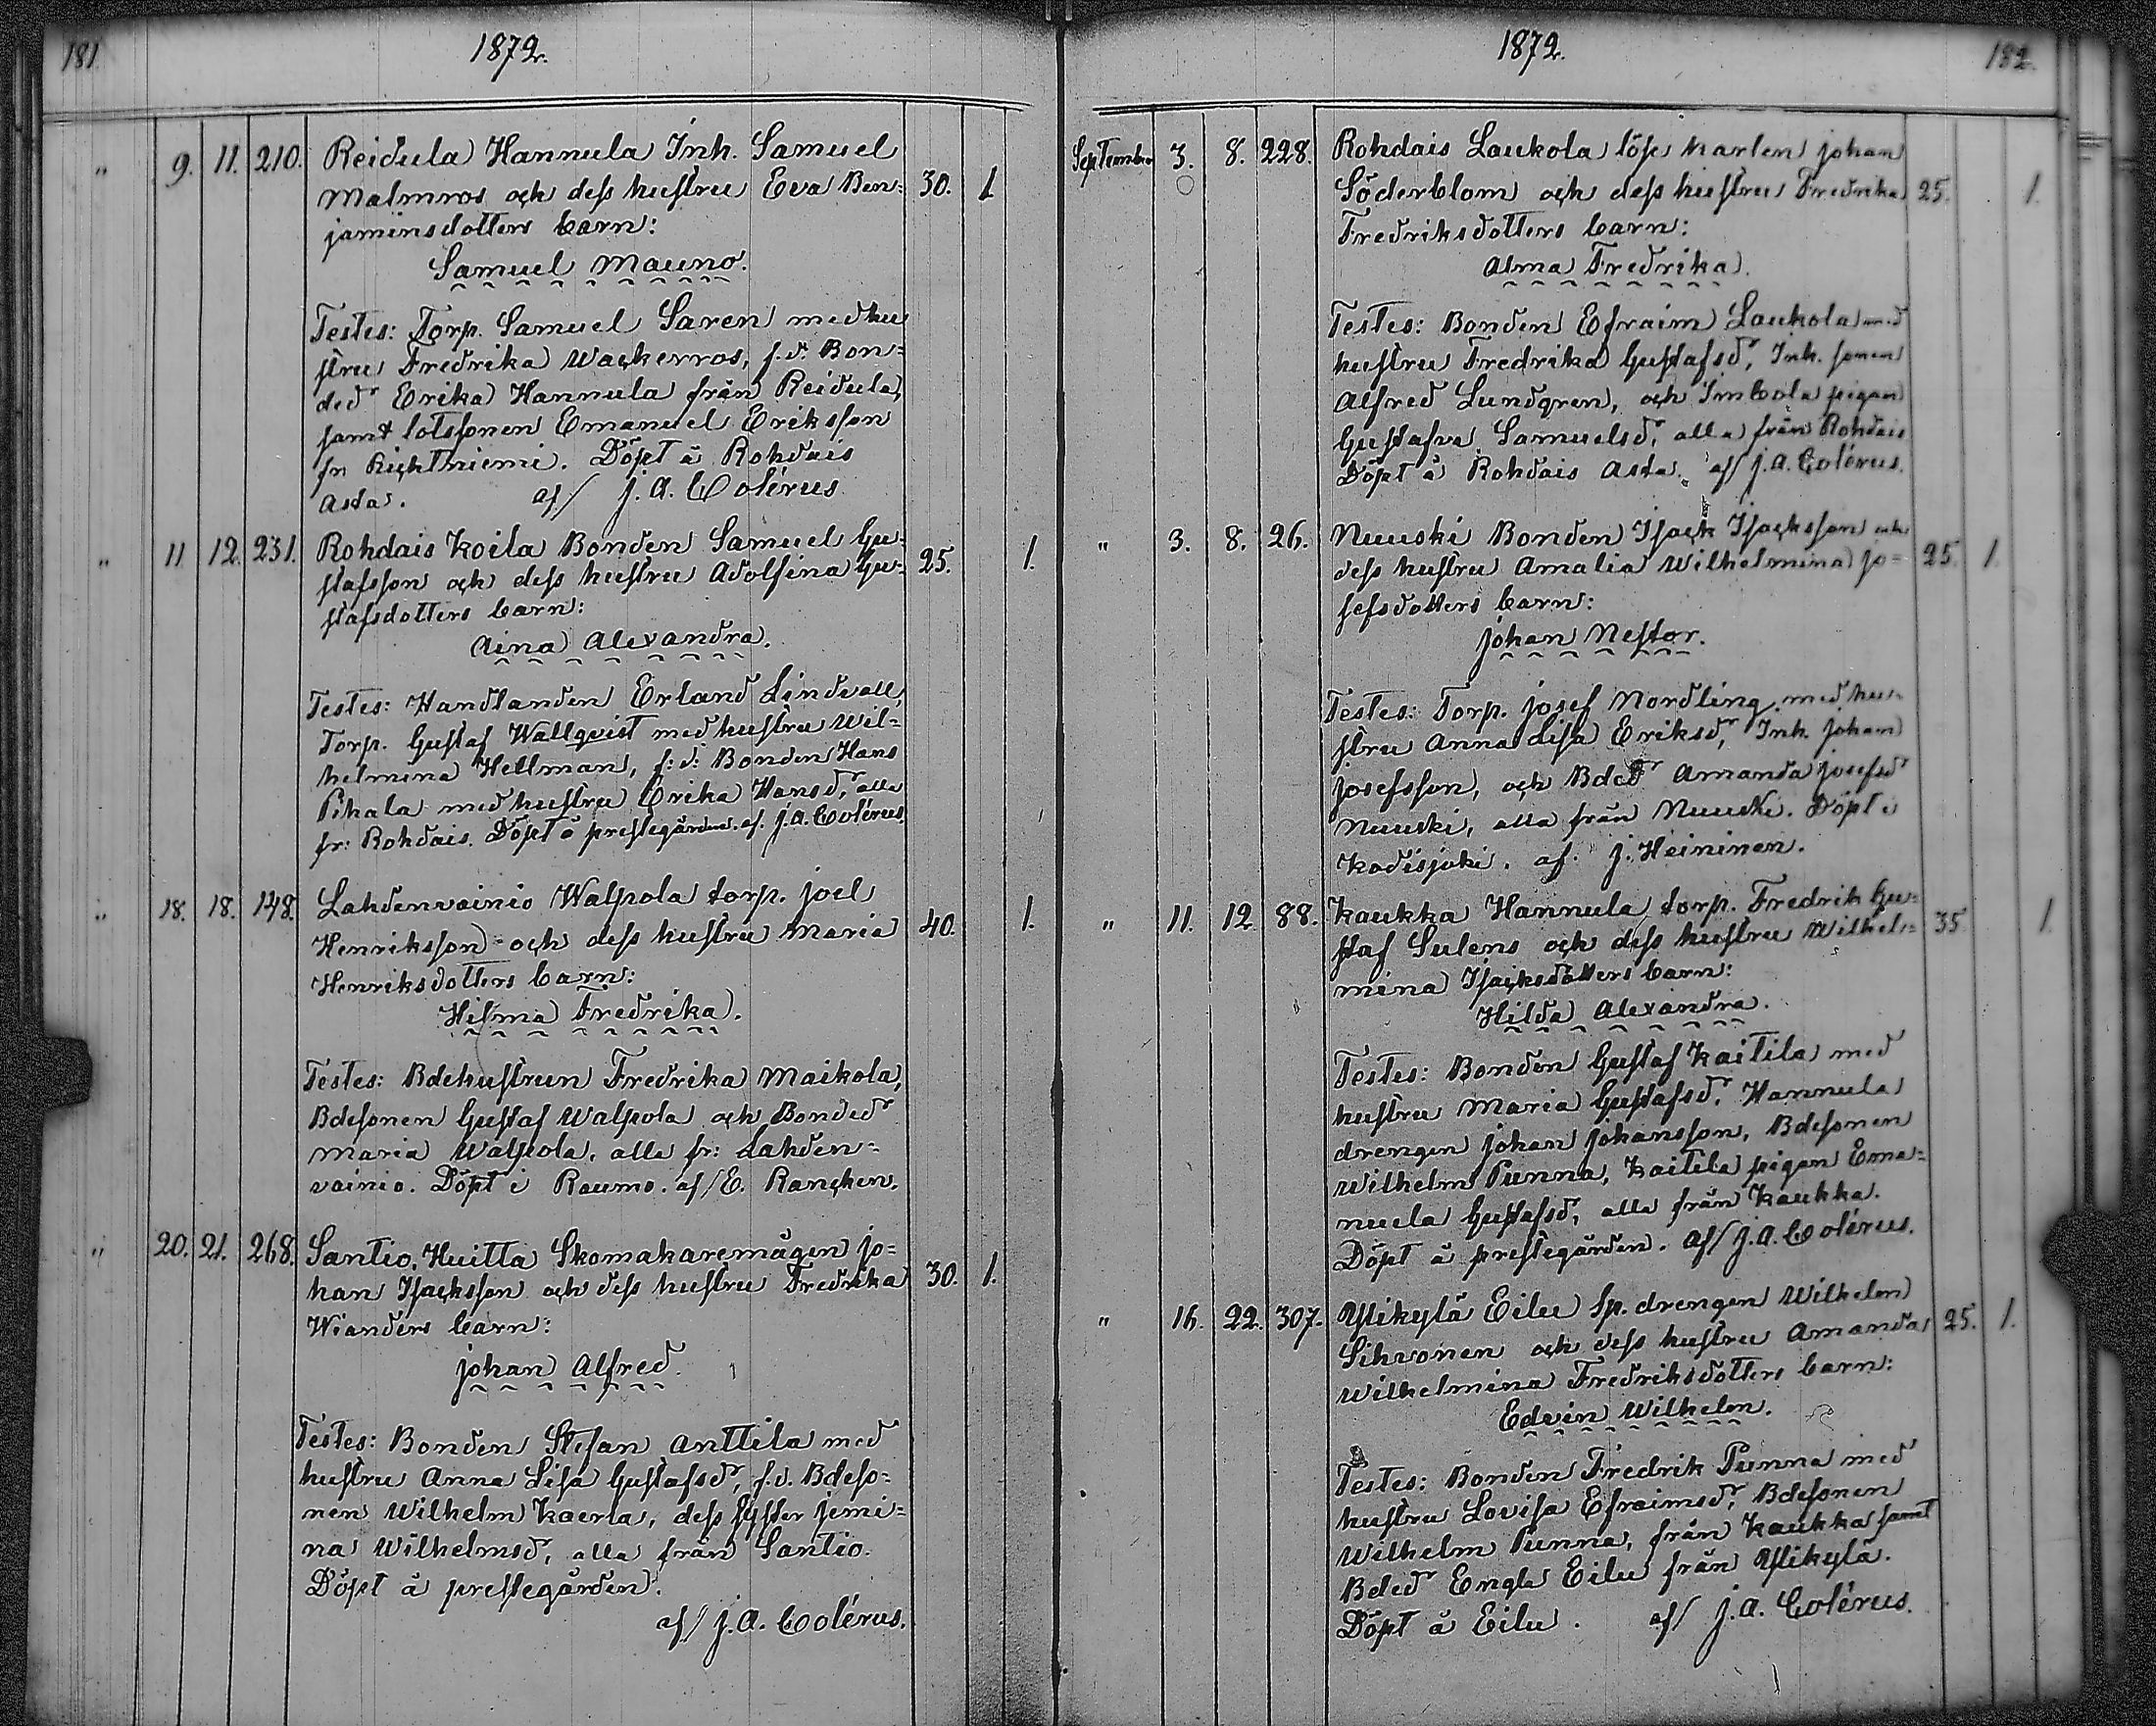 181.
1872.
" 9. 11. 210. Reidula Hannula Inh. Samuel
Malmros och dess hustru Eva Ben= 30. 1
jaminsdotters barn:
Samuel Mauno.
Testes: Torp. Samuel Saren med hu
stru Fredrika Wackerros, f.d. Bon=
ded:r Erika Hannula från Reidula,
samt lotssonen Emanuel Eriksson
fr. Richtniemi. Döpt å Rohdais
Asta. af/ J. A. Colérus
" 11 12. 231. Rohdais Koila Bonden Samuel Gu=
stafsson och dess hustru Adolfina Gu= 25. 1.
stafsdotters barn:
Aina Alexandra.
Testes: Handlanden Erland Lindvall,
Torp. Gustaf Wallqvist med hustru Wil=
helmina Hellman, f:d: Bonden Hans
Pihala med hustru Erika Hansd:r, alla
fr: Rohdais. Döpt å prestegården. af. J. A. Colérus.
" 18. 18. 148. Lahdenvainio Walpola torp. Joel
Henriksson och dess hustru Maria 40. 1.
Henriksdotters barn:
Hilma Fredrika.
Testes: Bdehustrun Fredrika Maikola,
Bdesonen Gustaf Walpola och Bonded:r
Maria Walpola, alla fr: Lahden=
vainio. Döpt i Raumo. af/ E. Rancken.
" 20. 21. 268. Santio, Huitta Skomakaremågen Jo=
han Isacksson och dess hustru Fredrika 30. 1.
Wianders barn:
Johan Alfred.
Testes: Bonden Stefan Anttila med
hustru Anna Lisa Gustafsd:r, f.d. Bdeso=
nen Wilhelm Kaerla, dess syster Jemi=
na Wilhelmsd:r, alla från Santio.
Döpt å prestegården.
af/ J. A. Colérus.
1872.
182.
September 3. 8. 228. Rohdais Laukola löse karlen Johan
Söderblom och dess hustru Fredrika 25. 1.
Fredriksdotters barn:
Alma Fredrika.
Testes: Bonden Efraim Laukola med
hustru Fredrika Gustafsd:r, Inh. sonen
Alfred Lundgren, och Imbola pigan
Gustafva Samuelsd:r, alla från Rohdais
Döpt å Rohdais Asta. af/ J. A. Colérus.
" 3. 8. 26. Nuuski Bonden Isack Isacksson och
dess hustru Amalia Wilhelmina Jo= 25. 1.
sefsdotters barn:
Johan Nestor.
Testes: Torp. Josef Nordling med hu=
stru Anna Lisa Eriksd:r, Inh. Johan
Josefsson, och Bded:r Amanda Josefsd:r
Nuuski, alla från Nuuski. Döpt i
Kodisjoki. af. J. Heininen.
" 11. 12 88. Kaukka Hannula torp. Fredrik Gu=
staf Sulens och dess hustru Wilhel= 35 1.
mina Isacksdotters barn:
Hilda Alexandra.
Testes: Bonden Gustaf Kaitila med
hustru Maria Gustafsd:r, Hannula
drengen Johan Johansson, Bdesonen
Wilhelm Punna, Kaitila pigan Ema=
nuela Gustafsd:r, alla från Kaukka.
Döpt å prestegården. af/ J. A. Colérus.
" 16. 22. 307. Ylikylä Eilu Sp. drengen Wilhelm
Sihvonen och dess hustru Amanda 25. 1.
Wilhelmina Fredriksdotters barn:
Edvin Wilhelm.
Testes: Bonden Fredrik Punna med
hustru Lovisa Efraimsd:r, Bdesonen
Wilhelm Punna, från Kaukka samt
Bded:r Engla Eilu från Ylikylä.
Döpt å Eilu. af/ J. A. Colérus.